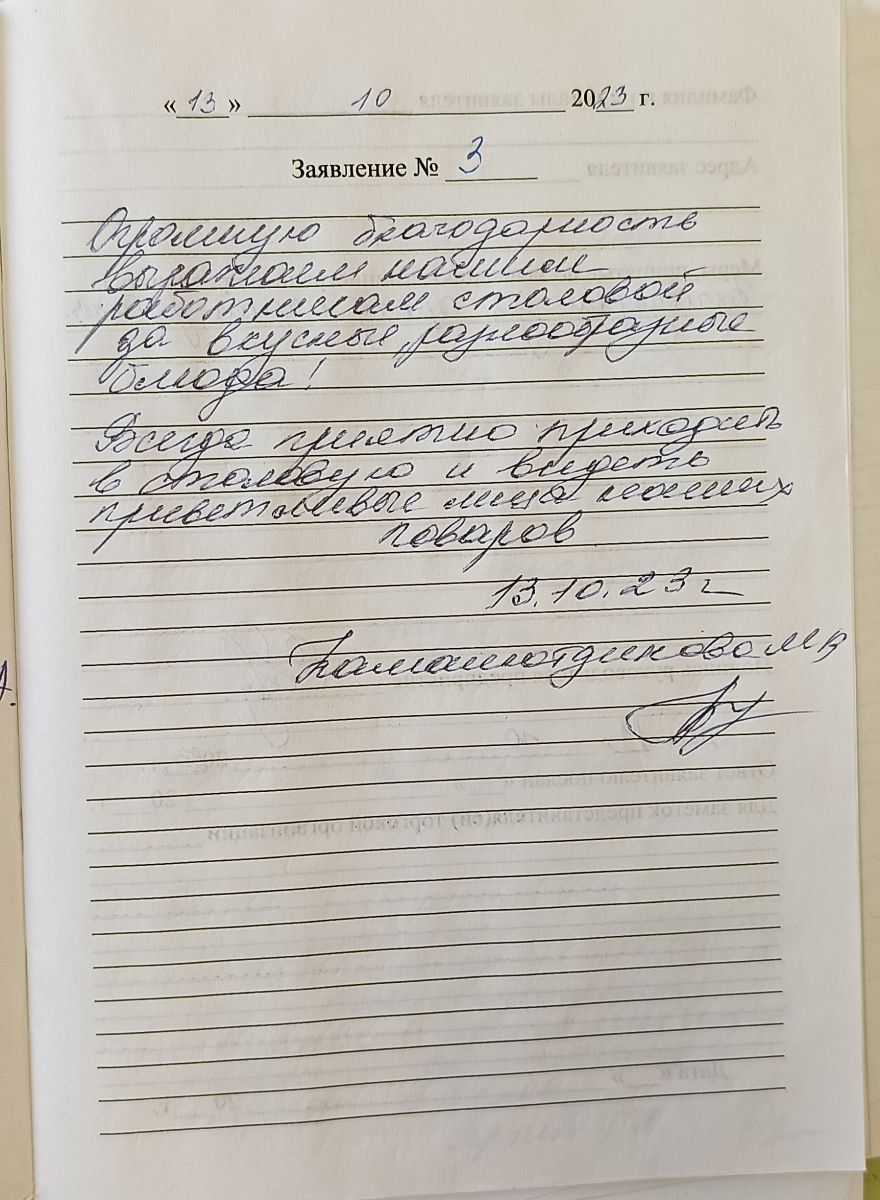 « 13 » 10 2023 г.
Заявление № 3
Огромную благодарность
выражаем нашим
работникам столовой
за вкусные, разнообразные
блюда!
Всегда приятно приходить
в столовую и видеть
приветливые лица наших
поваров
13.10.23 г